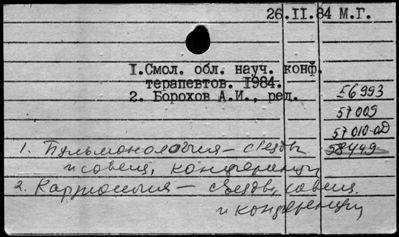 26.II.84 М.Г.
1.Смол. обл. науч. конф.
терапевтов. 1984.
2. Борохов А.И., ред.
56993
57009
57010-ад
58449
1. Пульмонология — съезды
и совещ, конференции
2. Кардиология — съезды, совещ
и конференции